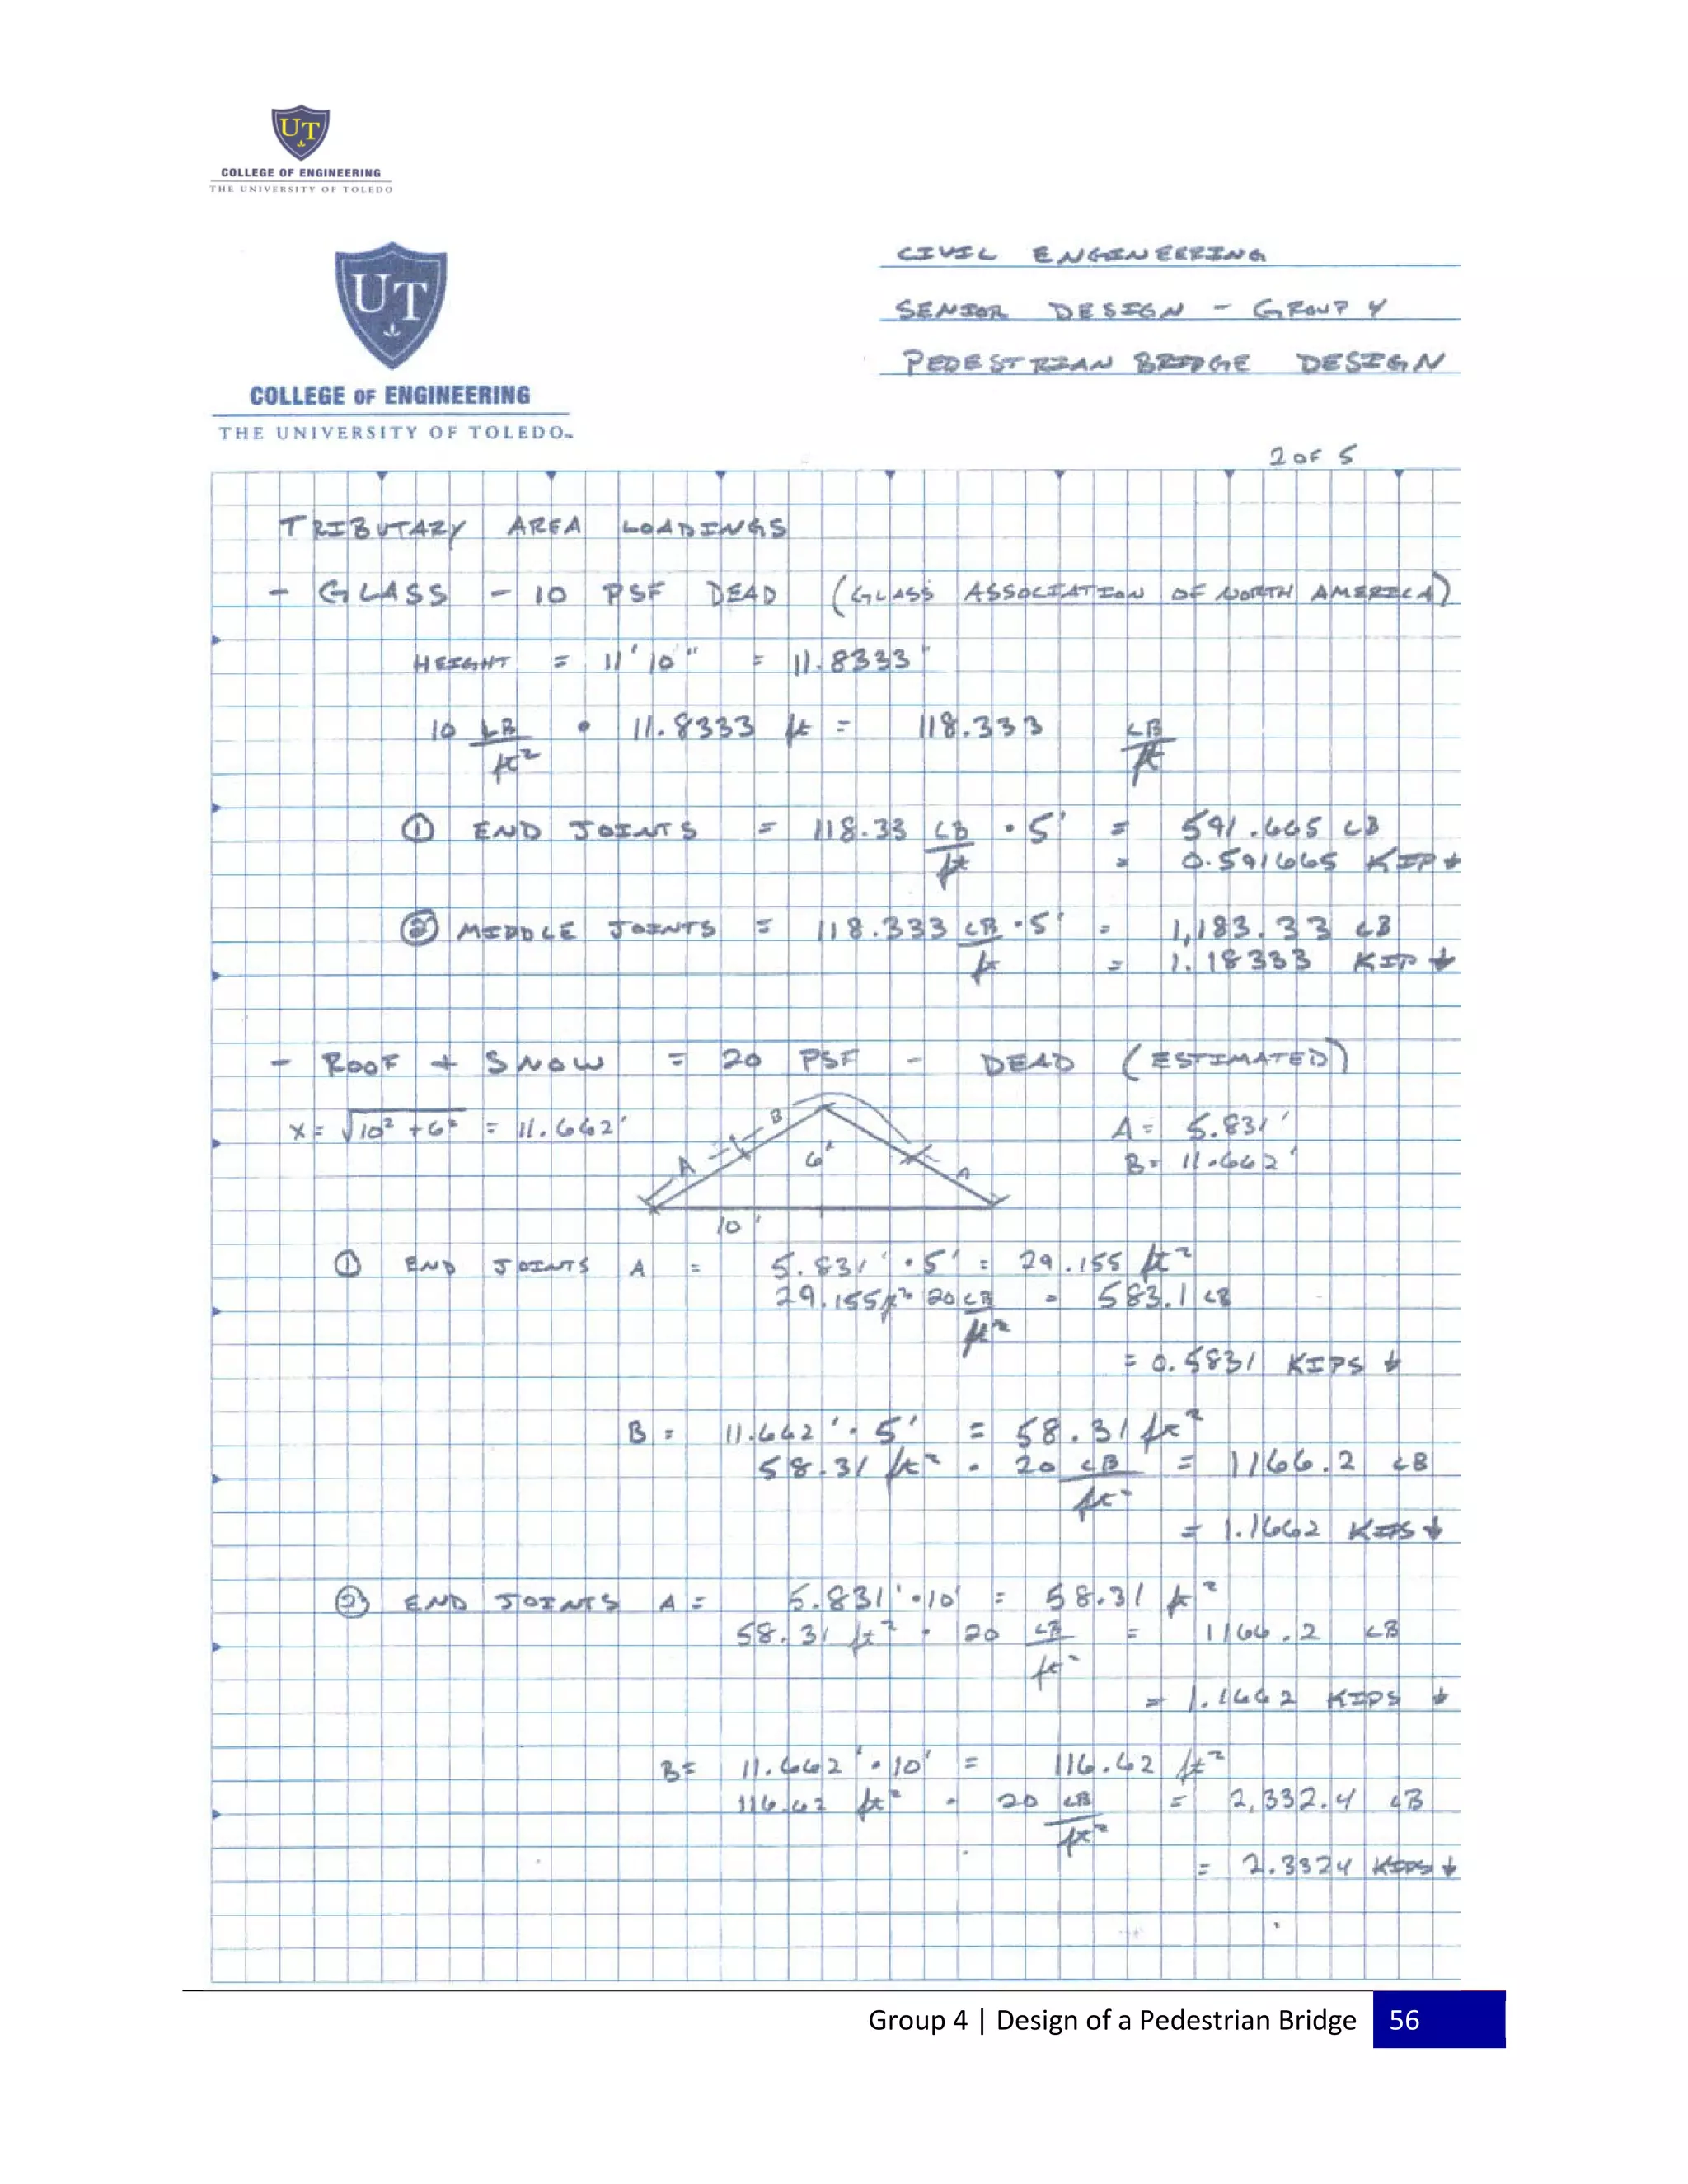 UT
COLLEGE OF ENGINEERING
THE UNIVERSITY OF TOLEDO
UT
COLLEGE OF ENGINEERING
THE UNIVERSITY OF TOLEDO
CIVIL ENGINEERING
SENIOR DESIGN - GROUP 4
PEDESTRIAN BRIDGE DESIGN
2 OF 5
TRIBUTARY AREA LOADINGS
- GLASS - 10 PSF DEAD (GLASS ASSOCIATION OF NORTH AMERICA)
HEIGHT = 11' 10" = 11.8333"
10 LB/ft² • 11.8333 ft = 118.333 LB/ft
① END JOINTS = 118.33 LB/ft • 5' = 591.665 LB
= 0.591665 KIP ↓
② MIDDLE JOINTS = 118.333 LB/ft • 5' = 1,183.33 LB
= 1.18333 KIP ↓
- ROOF + SNOW = 20 PSF - DEAD (ESTIMATED)
X = √10² + 6² = 11.662'
A B 6' A
10'
A = 5.831'
B = 11.662'
① END JOINTS A = 5.831' • 5' = 29.155 ft²
29.155 ft² 20 LB/ft² = 583.1 LB
= 0.5831 KIPS ↓
B = 11.662' • 5' = 58.31 ft²
58.31 ft² • 20 LB/ft² = 1166.2 LB
= 1.1662 KIPS ↓
② END JOINTS A = 5.831' • 10' = 58.31 ft²
58.31 ft² • 20 LB/ft² = 1166.2 LB
= 1.1662 KIPS ↓
B = 11.662' • 10' = 116.62 ft²
116.62 ft² • 20 LB/ft² = 2,332.4 LB
= 2.3324 KIPS ↓
Group 4 | Design of a Pedestrian Bridge 56